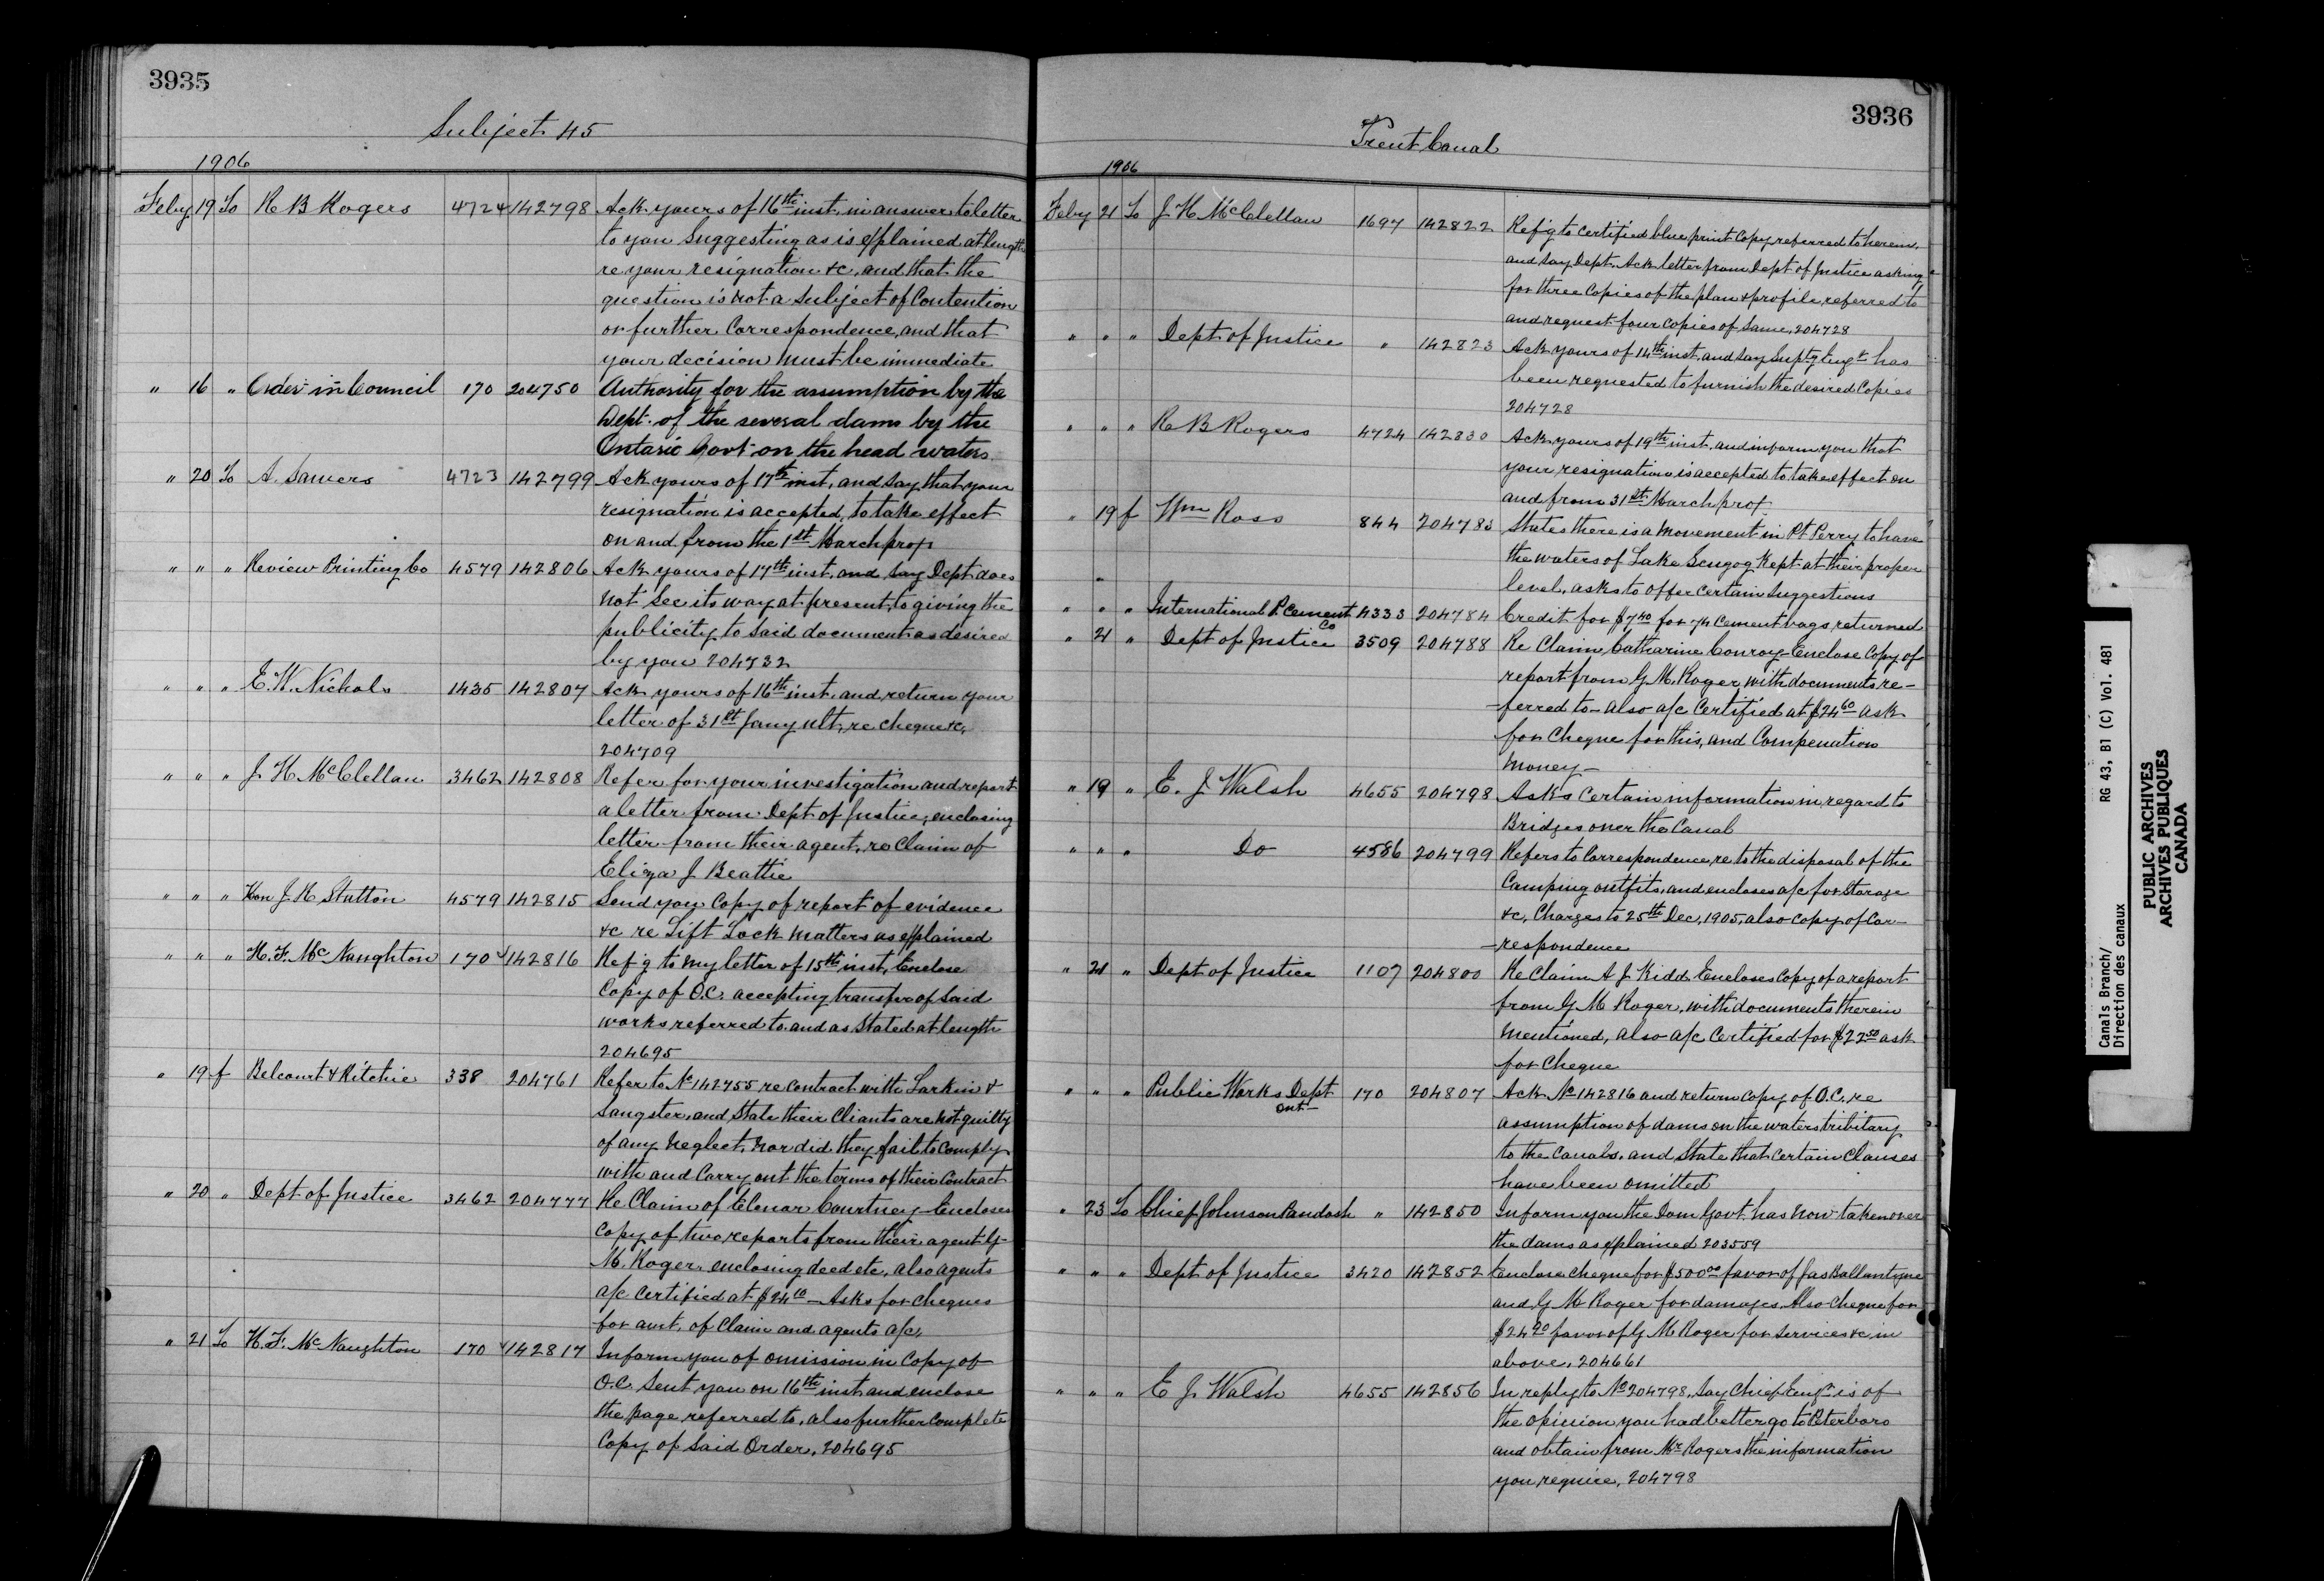 3935
Subject 45
1906
Feby 19 To R B Rogers 4724 142798 Ack yours of 16th inst. in answer to letter
to you suggesting as is explained at length
re your resignation &c. and that the
question is not a subject of contention
or further correspondence, and that
your decision must be immediate
" 16 " Order in Council 170 204750 Authority for the assumption by the
Dept. of the several dams by the
Ontario Govt on the head waters
" 20 To A. Sawers 4723 142799 Ack yours of 17th inst. and say that your
resignation is accepted, to take effect
on and from the 1st March prox
" " " Review Printing Co 4579 142806 Ack yours of 17th inst. and say Dept does
not see its way at present, to giving the
publicity to said document as desired
by you 204732
" " " E. W. Nichols 1435 142807 Ack yours of 16th inst. and return your
letter of 31st Jany ult. re cheque &c.
204709
" " " J. H. McClellan 3462 142808 Refer for your investigation and report
a letter from Dept of Justice, enclosing
letter from their agent, re claim of
Eliza J Beattie
" " " Hon J. R. Stratton 4579 142815 Send you copy of report of evidence
&c re Lift Lock matters as explained
" " " H. F. McNaughton 170 142816 Ref'g to my letter of 15th inst. Enclose
Copy of O.C. accepting transfer of said
works referred to and as stated at length
204695
" 19 f Belcourt & Ritchie 338 204761 Refer to No 142755 re contract with Larkin &
Sangster, and state their Cliants are not guilty
of any neglect, nor did they fail to comply
with and carry out the terms of their contract
" 20 " Dept of Justice 3462 204777 Re Claim of Elenor Courtney. Encloses
copy of two reports from their agent G
M. Roger, enclosing deed etc. also agents
a/c certified at $24 10 — Asks for cheques
for amt. of claim and agents a/c.
" 21 To H. F. McNaughton 170 142817 Inform you of omission in copy of
O.C. sent you on 16th inst and enclose
the page referred to, also further complete
copy of said Order, 204695
3936
Trent Canal
1906
Feby 21 To J H McClellan 1697 142822 Ref'g to certified blue print copy referred to herein,
and say Dept. Ack letter from Dept of Justice asking
for three copies of the plan & profile, referred to
and request four copies of same, 204728
" " " Dept of Justice " 142823 Ack yours of 14th inst. and say Suptg Engr has
been requested to furnish the desired copies
204728
" " " R B Rogers 4724 142830 Ack yours of 19th inst. and inform you that
your resignation is accepted to take effect on
and from 31st March prox
" 19 f Wm Ross 844 204783 States there is a movement in Pt Perry to have
the waters of Lake Scugog kept at their proper
level, asks to offer certain suggestions
" " " International P Cement Co 4333 204784 Credit for $7 40 for 74 cement bags returned
" 21 " Dept of Justice 3509 204788 Re Claim Catharine Conroy — Enclose copy of
report from G M. Roger, with documents re-
-ferred to — also a/c certified at $24 60 ask
for cheque for this, and compensation
money —
" 19 " E. J Walsh 4655 204798 Asks certain information in regard to
Bridges over the Canal
" " " Do 4586 204799 Refers to correspondence, re to the disposal of the
camping outfits, and encloses a/c for storage
&c, charges to 25th Dec, 1905, also copy of Cor-
-respondence
" 21 " Dept of Justice 1107 204800 Re Claim A J Kidd Encloses copy of a report
from G M Roger, with documents therein
mentioned, also a/c certified for $22 50 ask
for cheque
" " " Public Works Dept Ont- 170 204807 Ack No 142816 and return copy of O.C. re
assumption of dams on the waters tribitary
to the Canals, and state that certain clauses
have been omitted
" 23 To Chief Johnson Paudash " 142850 Inform you the Dom Govt. has now taken over
the dams as explained 203559
" " " Dept of Justice 3420 142852 Enclose cheque for $500 00 favor of Jas Ballantyne
and G M Roger for damages. Also cheque for
$24 20 favor of G M Roger for services &c in
above, 204661
" " " E J. Walsh 4655 142856 In reply to No 204798, say Chief Engr is of
the opinion you had better go to Peterboro
and obtain from Mr Rogers the information
you require, 204798
Canals Branch/
Direction des canaux
RG 43, B1 (C) Vol. 481
PUBLIC ARCHIVES
ARCHIVES PUBLIQUES
CANADA